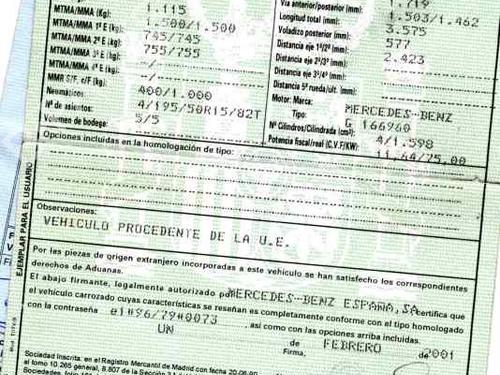 1.115
MTMA/MMA (kg):
MTMA/MMA 1º E (kg): 1.500/1.500
MTMA/MMA 2º E (kg): 745/745
MTMA/MMA 3º E (kg): 755/755
MTMA/MMA 4º E (kg):
MMR S/F. c/F (kg):
Neumáticos: 400/1.000
Nº de asientos: 4/195/50R15/82T
Volumen de bodega: 5/5
Vía anterior/posterior (mm): 1.719
Longitud total (mm): 1.503/1.462
Voladizo posterior (mm): 3.575
Distancia eje 1º/2º (mm): 577
Distancia eje 2º/3º (mm): 2.423
Distancia eje 3º/4º (mm):
Distancia 5ª rueda/últ. (mm):
Motor: Marca: MERCEDES-BENZ
Tipo: G 166960
Nº Cilindros/Cilindrada (cm³): 4/1.598
Potencia fiscal/real (C.V.F/KW): 11,64/75.00
Opciones incluidas en la homologación de tipo:
EJEMPLAR PARA EL USUARIO
Observaciones:
VEHICULO PROCEDENTE DE LA U.E.
Por las piezas de origen extranjero incorporadas a este vehículo se han satisfecho los correspondientes
derechos de Aduanas.
El abajo firmante, legalmente autorizado por MERCEDES-BENZ ESPAÑA,SA certifica que
el vehículo carrozado cuyas características se reseñan es completamente conforme con el tipo homologado
con la contraseña e1*96/79*0073 , así como con las opciones arriba incluidas.
UN de FEBRERO de 2001
Firma,
Sociedad Inscrita. en el Registro Mercantil de Madrid con fecha
al tomo 10.265 general, 8.807 de la Sección